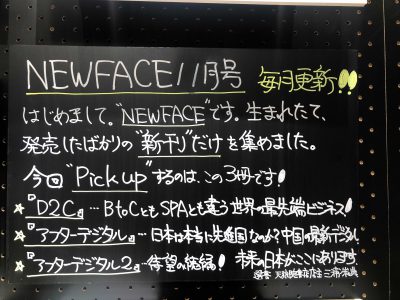 NEWFACE11月号 毎月更新!!
はじめまして。"NEWFACE"です。生まれたて、
発売したばかりの"新刊"だけを集めました。
今回"Pick up"するのは、この3冊です!
★『D2C』…BtoCともSPAとも違う世界の最先端ビジネス!
★『アフターデジタル』…日本は本当に先進国なのか?中国の最新デジタル
★『アフターデジタル2』…待望の続編!未来の日本がここにあります。